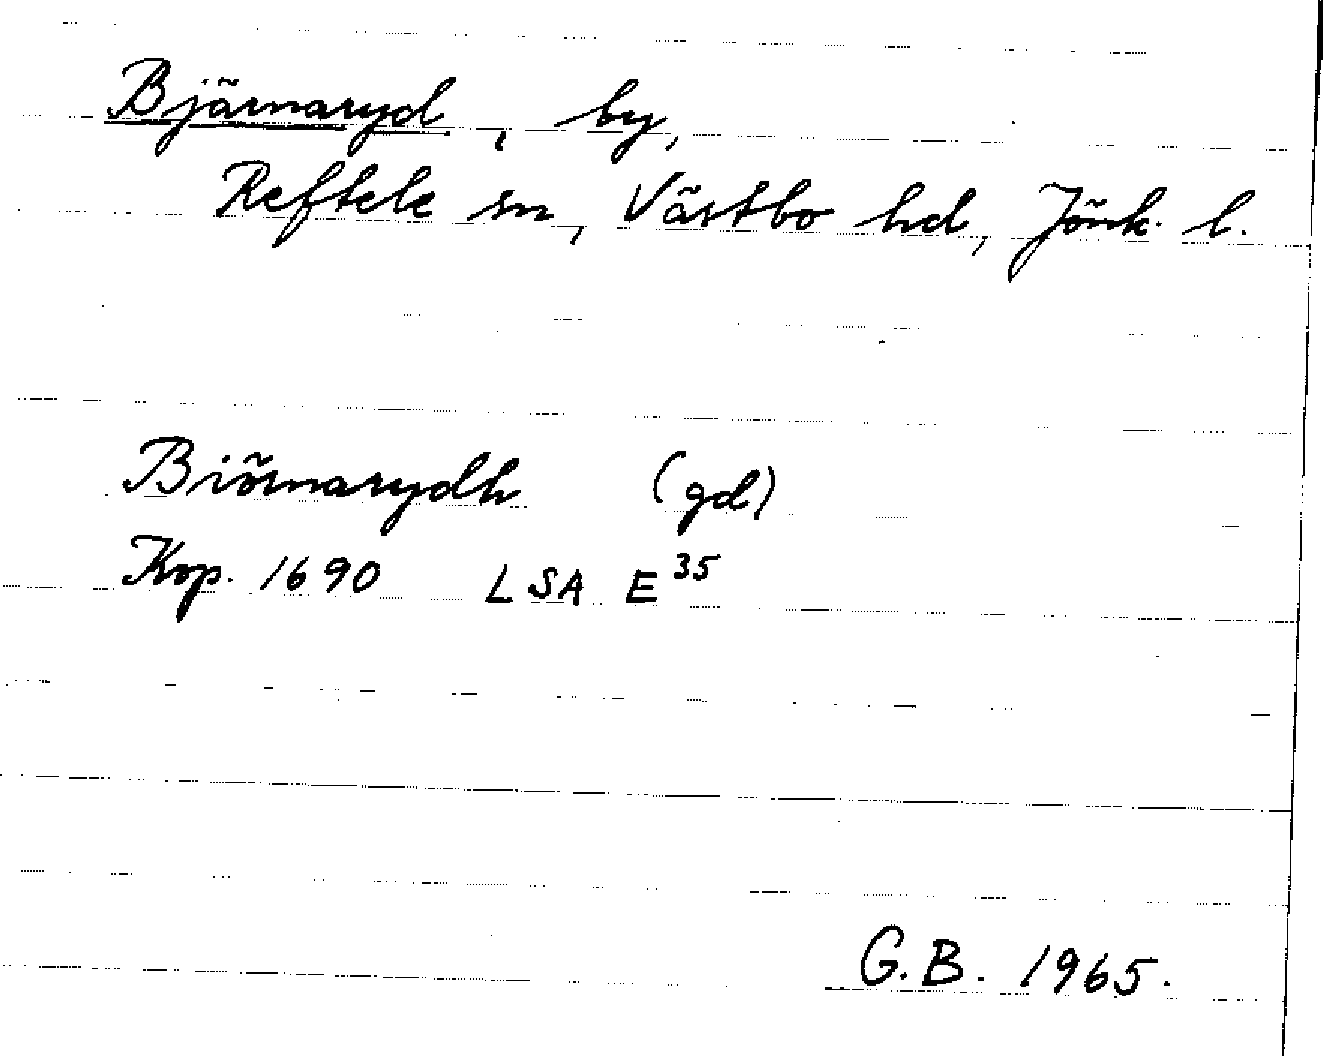 Bjärnaryd, by,
Reftele sn, Västbo hd, Jönk. l.
Biörnarydh (gd)
Kop. 1690 LSA E 35
G.B. 1965.